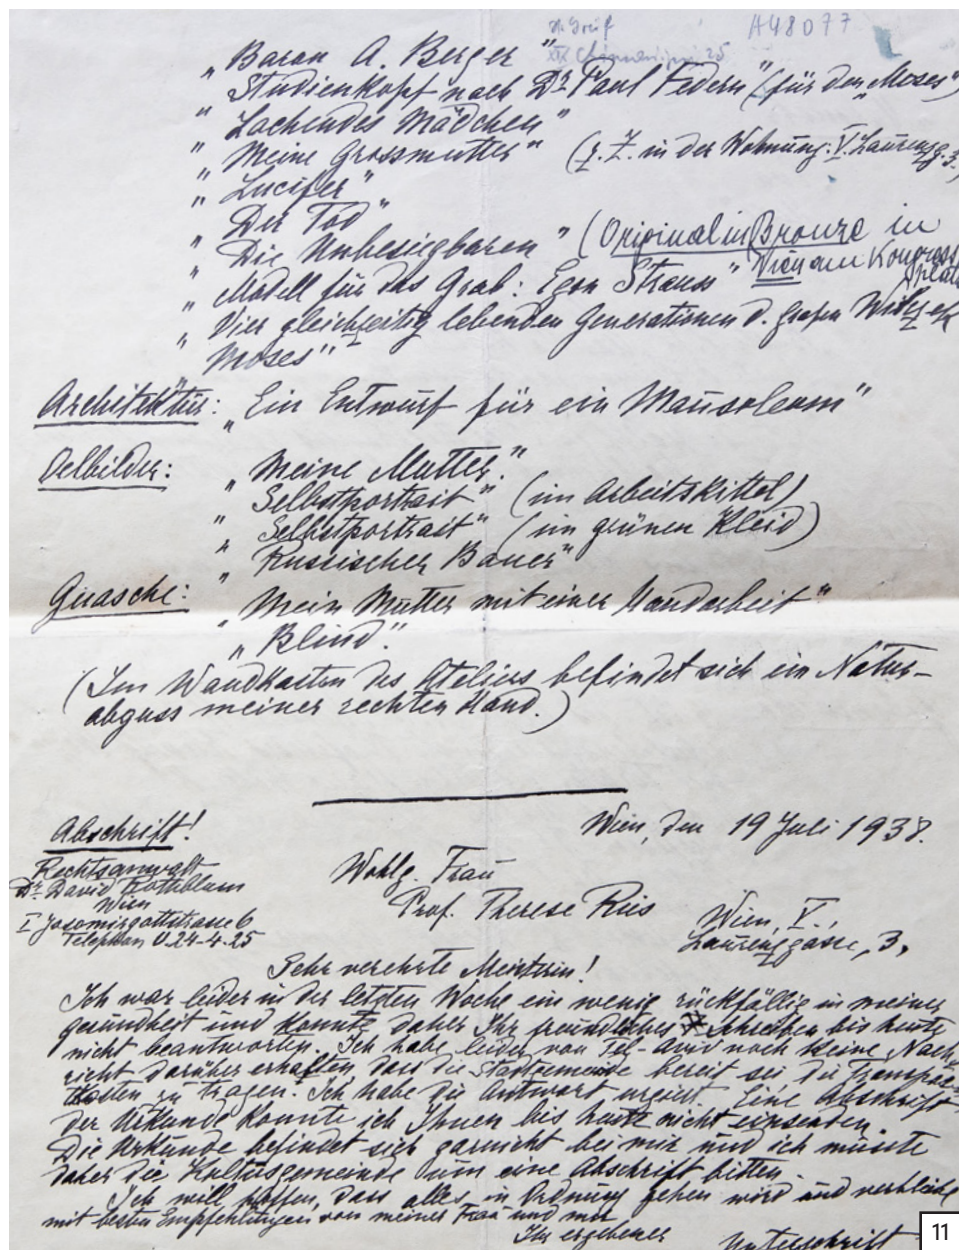 A48077
"Baron A. Berger"
"Studienkopf nach Dr Paul Federn" (für den "Moses")
"Lachendes Mädchen"
"Meine Grossmutter" (z. Z. in der Wohnung: V. Laurenzg. 3.
"Lucifer"
"Der Tod"
"Die Unbesiegbaren" (Original in Bronze in
Wien am Kongress
platz
"Modell für das Grab: Egon Strauss"
"Vier gleichzeitig lebenden Generationen d. grafen Wilczek
"Moses"
Architektur: "Ein Entwurf für ein Mausoleom"
Oelbilder: "Meine Mutter."
"Selbstportrait" (im Arbeitskittel)
"Selbstportrait" (im grünen Kleid)
"Russischer Bauer"
Guasche: "Mein Mutter mit einer Handarbeit"
"Blind".
(Im Wandkasten des Ateliers befindet sich ein Natur-
abguss meiner rechten Hand.)
Abschrift!
Wien, den 19 Juli 1938.
Rechtsanwalt
Dr. David Rothblum
Wien
I Jasomirgottstrasse 6
Telephon U.24-4-25
Wohlg. Frau
Prof. Therese Ries
Wien, V.,
Laurenzgasse, 3,
Sehr verehrte Meisterin!
Ich war leider in der letzten Woche ein wenig rückfällig in meiner
gesundheit und konnte daher Ihr freundliches Schreiben bis heute
nicht beantworten. Ich habe leider von Tel-Aviv noch keine Nach
richt darüber erhalten, dass die Stadtgemeinde bereit sei die Transport
kosten zu tragen. Ich habe die Antwort urgiert. Eine Abschrift
der Urkunde konnte ich Ihnen bis heute nicht einsenden.
Die Urkunde befindet sich garnicht bei mir und ich müsste
daher die Kultusgemeinde um eine Abschrift bitten.
Ich will hoffen, dass alles in Ordnung gehen wird und verbleibe
mit besten Empfehlungen von meiner Frau und mir
Ihr ergebener
Unterschrift
11